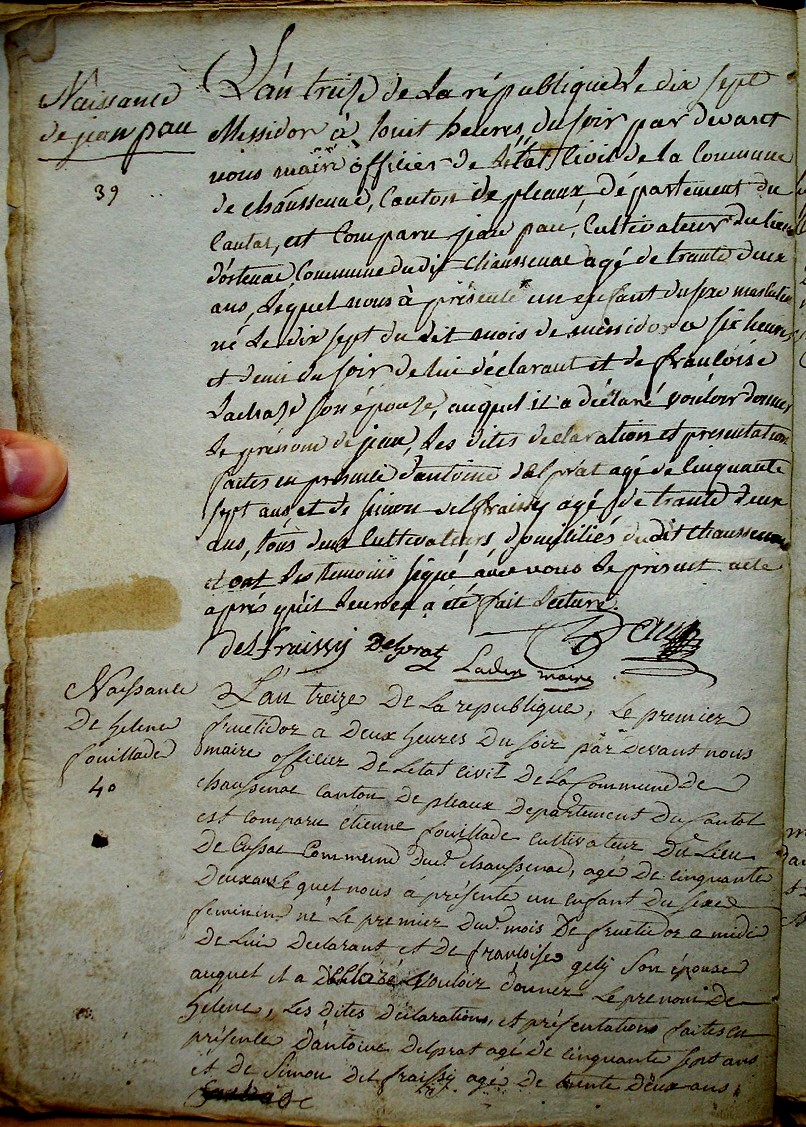 Naissance
de jean pau
39
L'an treise de la république, le dix sept
Messidor à houit heures du soir par devant
nous maire officier de l'état Civil de la Commune
de chaussenac, Canton de pleaux, département du
Cantal, est Comparu jean pau, Cultivateur du lieu
d'ostenac Commune du dit chaussenac agé de trante deux
ans, lequel nous à présenté un enfant du sexe masculin
né le dix sept du dit mois de méssidor a six heures
et demi du soir de lui déclarant et de francoise
Lachase son épouse, auquel il a déclaré vouloir donner
le prénom de jean, les dites declaration et presentation
faites en presence d'antoine delprat agé de cinquante
sept ans et de simon delfraissy agé de trante deux
ans, tous deux Cultivateurs, domiciliés du dit chaussenac
et ont les temoins signé avec nous le present acte
après qu'il leur en a été fait lecture.
delfraissy Delprat
Laden maire
Naissance
De helene
fouillade
40
L'an treize de la republique, le premier
fructidor a deux heures du soir par devant nous
maire officier de l'etat civil de la Commune de
chaussenac canton de pleaux departement du Cantal
est comparu étienne fouillade cultivateur du lieu
De Cussac Commune dud. chaussenac, agé de cinquante
deux ans lequel nous à présente un enfant du sexe
feminin né le premier dud. mois de fructidor a midi
de lui declarant et de francoise gely son épouse
auquel il a déclaré vouloir donner le prenom de
hélene, les dites déclarations, et présentations faites en
présence d'antoine delprat agé de cinquante sept ans
et de Simon delfraissy agé de trente deux ans